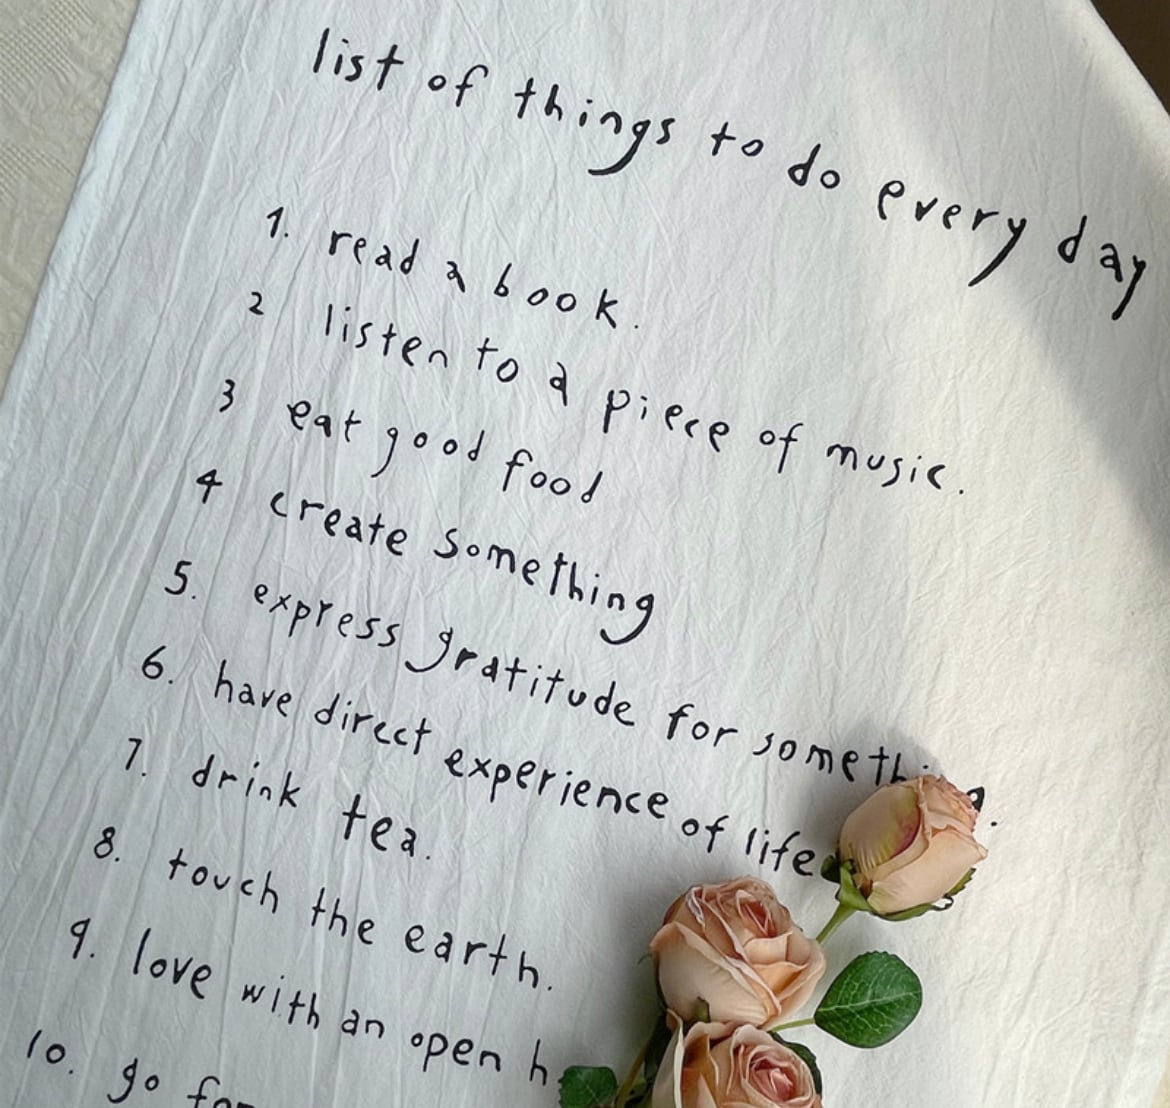 list of things to do every day
1. read a book.
2 listen to a piece of music.
3 eat good food
4 create something
5. express gratitude for something.
6. have direct experience of life
7. drink tea.
8. touch the earth.
9. love with an open
10. go